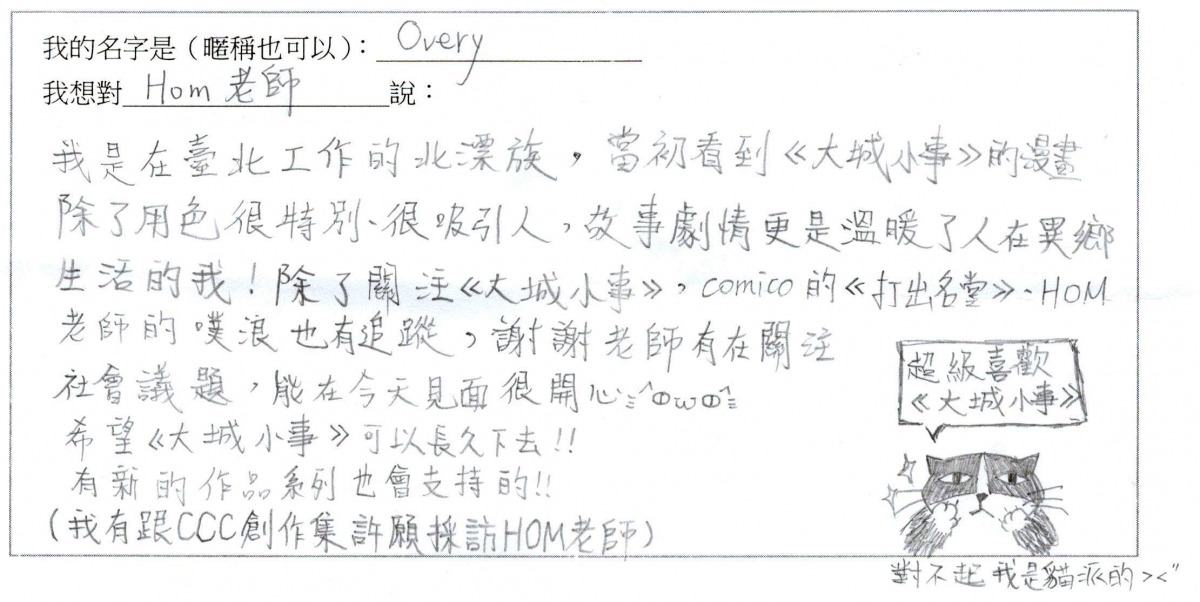 我的名字是（暱稱也可以）：Overy
我想對 Hom老師 說：
我是在臺北工作的北漂族，當初看到《大城小事》的漫畫
除了用色很特別、很吸引人，故事劇情更是溫暖了人在異鄉
生活的我！除了關注《大城小事》，comico的《打出名堂》、HOM
老師的噗浪也有追蹤，謝謝老師有在關注
社會議題，能在今天見面很開心ミ^ΦωΦ^ミ
希望《大城小事》可以長久下去!!
有新的作品系列也會支持的!!
(我有跟CCC創作集許願採訪HOM老師)
超級喜歡
《大城小事》
對不起 我是貓派的><"